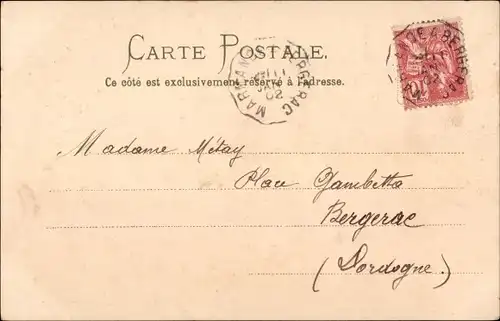 CARTE POSTALE.
Ce côté est exclusivement réservé à l'adresse.
BERGERAC
02
Madame Métay
Place Gambetta
Bergerac
(Dordogne)